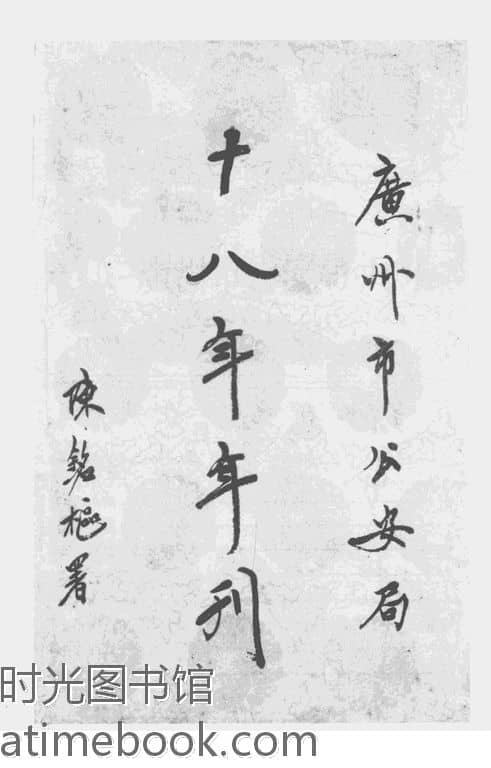 廣州市公安局
十八年年刊
陳銘樞署
时光图书馆
atimebook.com